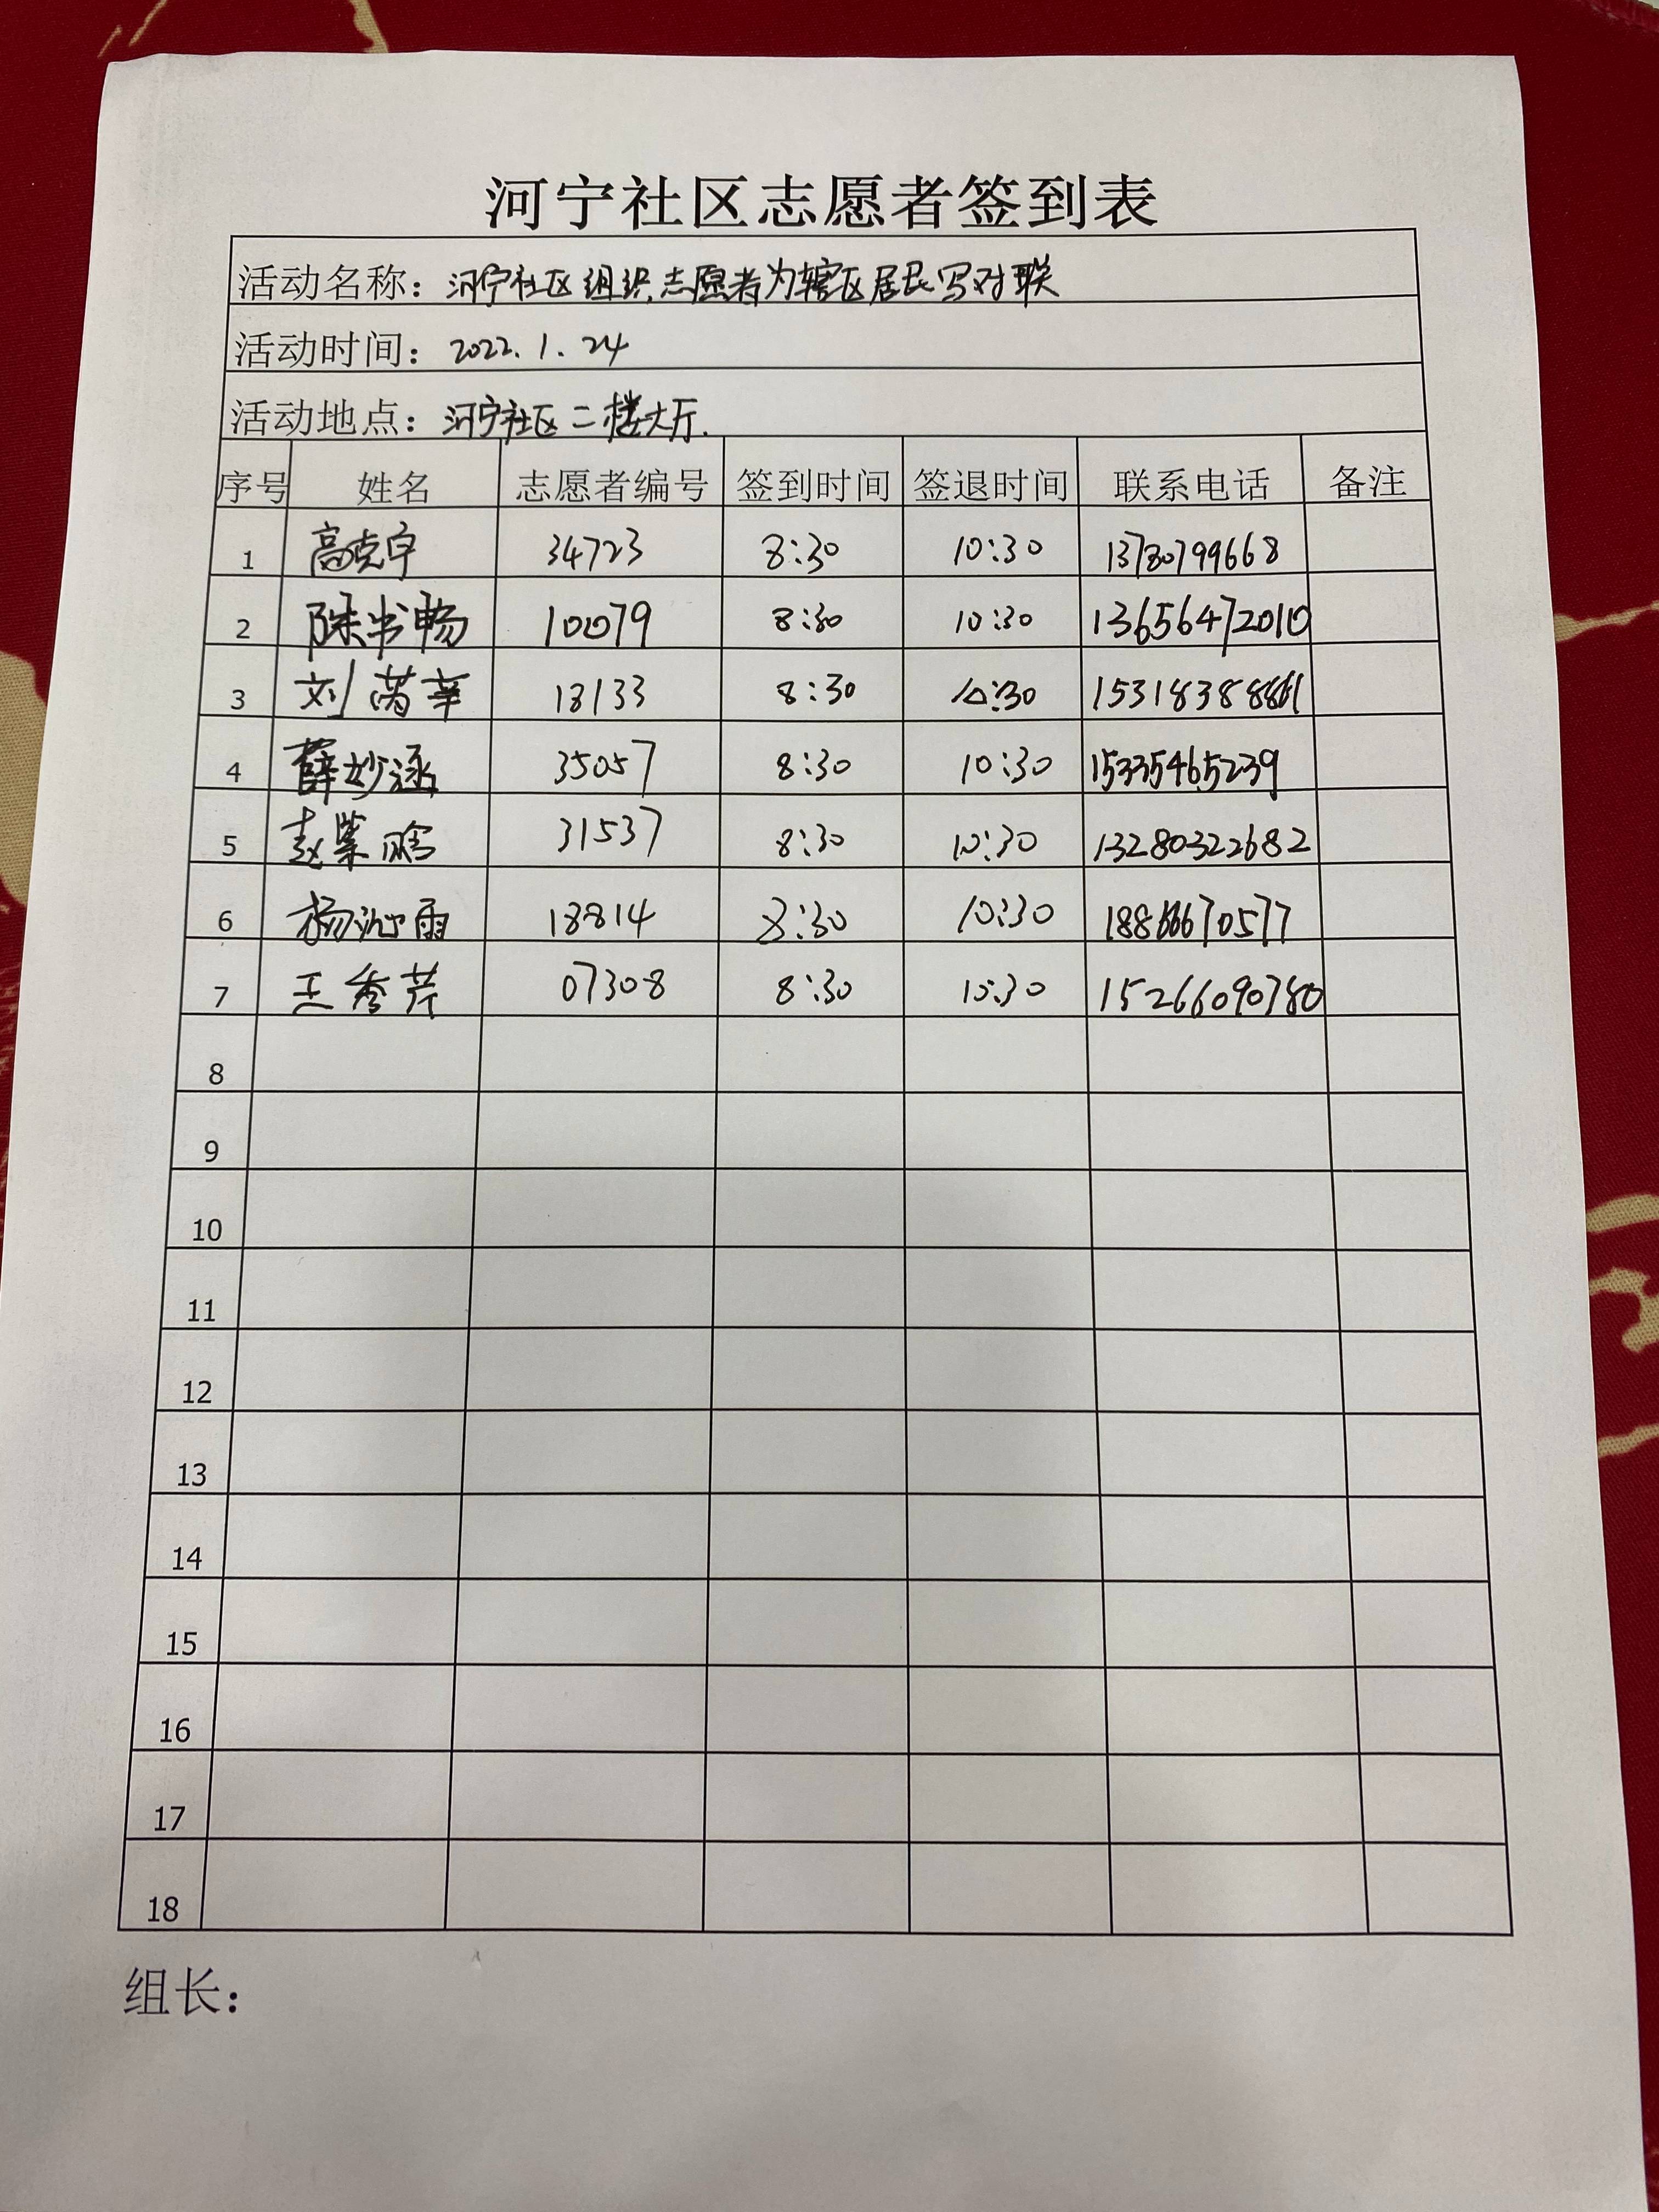 河宁社区志愿者签到表
活动名称：河宁社区组织志愿者为辖区居民写对联
活动时间：2022.1.24
活动地点：河宁社区二楼大厅.
序号 姓名 志愿者编号 签到时间 签退时间 联系电话 备注
1 高克宇 34723 8:30 10:30 13780799668
2 陈书畅 10079 8:30 10:30 13656472010
3 刘芮辛 18133 8:30 10:30
4 薛妙涵 35057 8:30 10:30 15335465239
5 赵紫晗 31537 8:30 10:30 13280322682
6 杨沁雨 18814 8:30 10:30
7 王秀芹 07308 8:30 10:30 15266090780
8
9
10
11
12
13
14
15
16
17
18
组长：